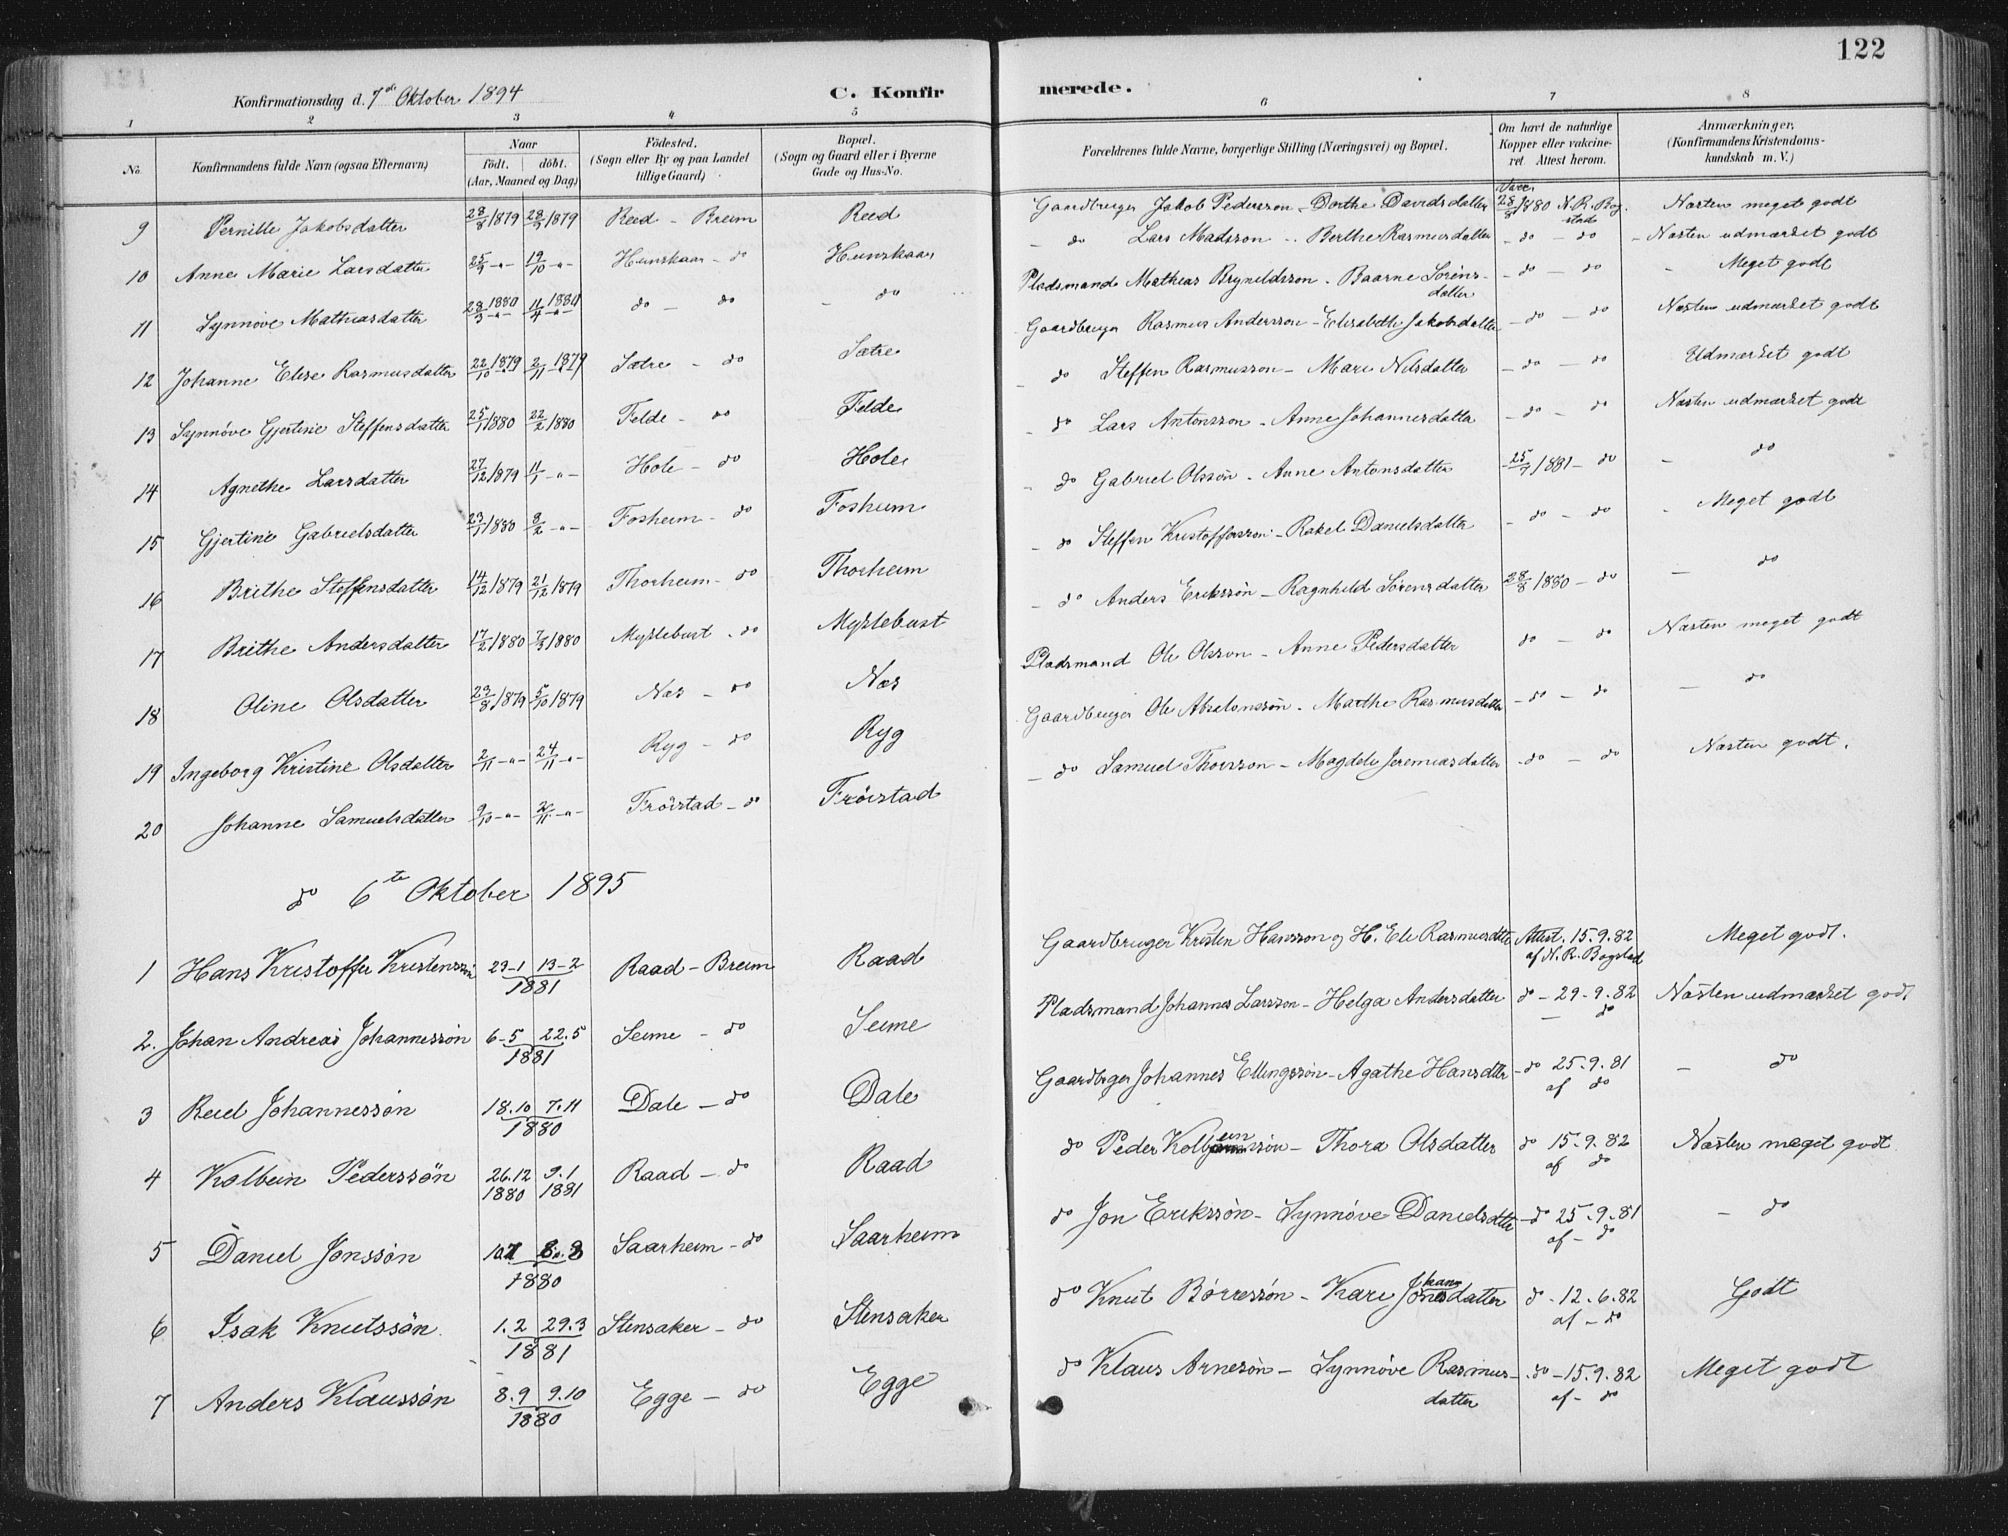 122
Konfirmationsdag d. 7de Oktober 1894 C. Konfirmerede.
1 2 3 4 5 6 7 8
No. Konfirmandens fulde Navn (ogsaa Efternavn) Naar født. døbt. (Aar, Maaned og Dag) Födested. (Sogn eller By og paa Landet tillige Gaard) Bopæl. (Sogn og Gaard eller i Byerne Gade og Hus-No. Forældrenes fulde Navne, borgerlige Stilling (Næringsvei) og Bopæl. Om havt de naturlige Kopper eller vakcineret. Attest herom. Anmærkninger. (Konfirmandens Kristendomskundskab m. V.)
9 Pernille Jakobsdatter 28/8 1879 28/9 1879 Reed - Breim Reed Gaardbruger Jakob Pedersson - Dorthe Davidsdatter Vacc. 28/8 1880 N. R. Bogstad Næsten meget godt
10 Anne Marie Larsdatter 25/9 -"- 19/10 -"- Hunskaar - do Hunskaar - do Lars Madsson - Berthe Rasmusdatter - do - do - Næsten udmærket godt
11 Synnøve Mathiasdatter 28/3 1880 -"- 11/4 1880 -"- do - do - do Pladsmand Mathias Brynildsson - Baarne Sørensdatter - do - do - Meget godt
12 Johanne Elise Rasmusdatter 22/10 1879 2/11 1879 Sætre - do Sætre Gaardbruger Rasmus Andersson - Elisabeth Jakobsdatter - do - do Næsten udmærket godt
13 Synnøve Gjertine Steffensdatter 25/1 1880 22/2 1880 Felde - do Felde - do Steffen Rasmusson - Mari Nilsdatter - do - do Udmærket godt
14 Agnethe Larsdatter 27/12 1879 11/1 -"- Hole - do Hole - do Lars Antonsson - Anne Johannesdatter - do - do Næsten udmærket godt
15 Gjertine Gabrielsdatter 23/1 1880 8/2 -"- Fosheim - do Fosheim - do Gabriel Olssøn - Anne Antonsdatter - 25/9 1881 - do - do
16 Brithe Steffensdatter 14/12 1879 21/12 1879 Thorheim - do Thorheim - do Steffen Kristofferssøn - Rakel Danielsdatter - do - do - Meget godt
17 Brithe Andersdatter 17/2 1880 7/3 1880 Myklebust - do Myklebust - do Anders Erikssøn - Ragnhild Sørensdatter 28/8 1880 - do - do
18 Oline Olsdatter 23/8 1879 5/10 1879 Næs - do Næs Pladsmand Ole Olsson - Anne Pedersdatter do - do Næsten meget godt
19 Ingeborg Kristine Olsdatter 2/11 -"- 24/11 -"- Ryg - do Ryg Gaardbruger Ole Absalonssøn - Marthe Rasmusdatter - do - do - do
20 Johanne Samuelsdatter 9/10 -"- 2/11 -"- Frøistad - do Frøistad - do Samuel Thorsson - Magdele Jeremiasdatter - do - do Næsten godt.
do 6te Oktober 1895
1 Hans Kristoffer Kristenssøn 23-1 13-2 1881 Raad - Breim Raad Gaardbruger Kristen Hansson og H. Eli Rasmusdtter Attest. 15.9.82 af N. R. Bogstad Meget godt.
2. Johan Andreas Johannessøn 6-5 22.5 1881 Seime - do Seime Pladsmand Johannes Larsson - Helga Andersdatter do - 29-9.82 - do Næsten udmærket godt
3 Reiel Johannessøn 18.10 7.11 1880 Dale - do Dale Gaardbrger Johannes Ellingssøn - Agathe Hansdtter - do 25.9.81 af do - do
4 Kolbein Pederssøn 26.12 1880 9.1 1881 Raad - do Raad do Peder Kolbeinssøn - Thora Olsdatter do 15.9.82 af do Næsten meget godt
5 Daniel Jonssøn 8.8 1880 Saarheim - do Saarheim do Jon Erikssøn - Synnøve Danielsdtter - do 25.9.81 af - do - do
6 Isak Knutssøn 1.2 29.3 1881 Stensaker - do Stensaker do Knut Børressøn - Kari Johansdatter do - 12.6.82 af - do Godt
7 Anders Klaussøn 8.9 9.10 1880 Egge - do Egge do Klaus Arnesøn - Synnøve Rasmusdatter - do - 15.9.82 af - do Meget godt